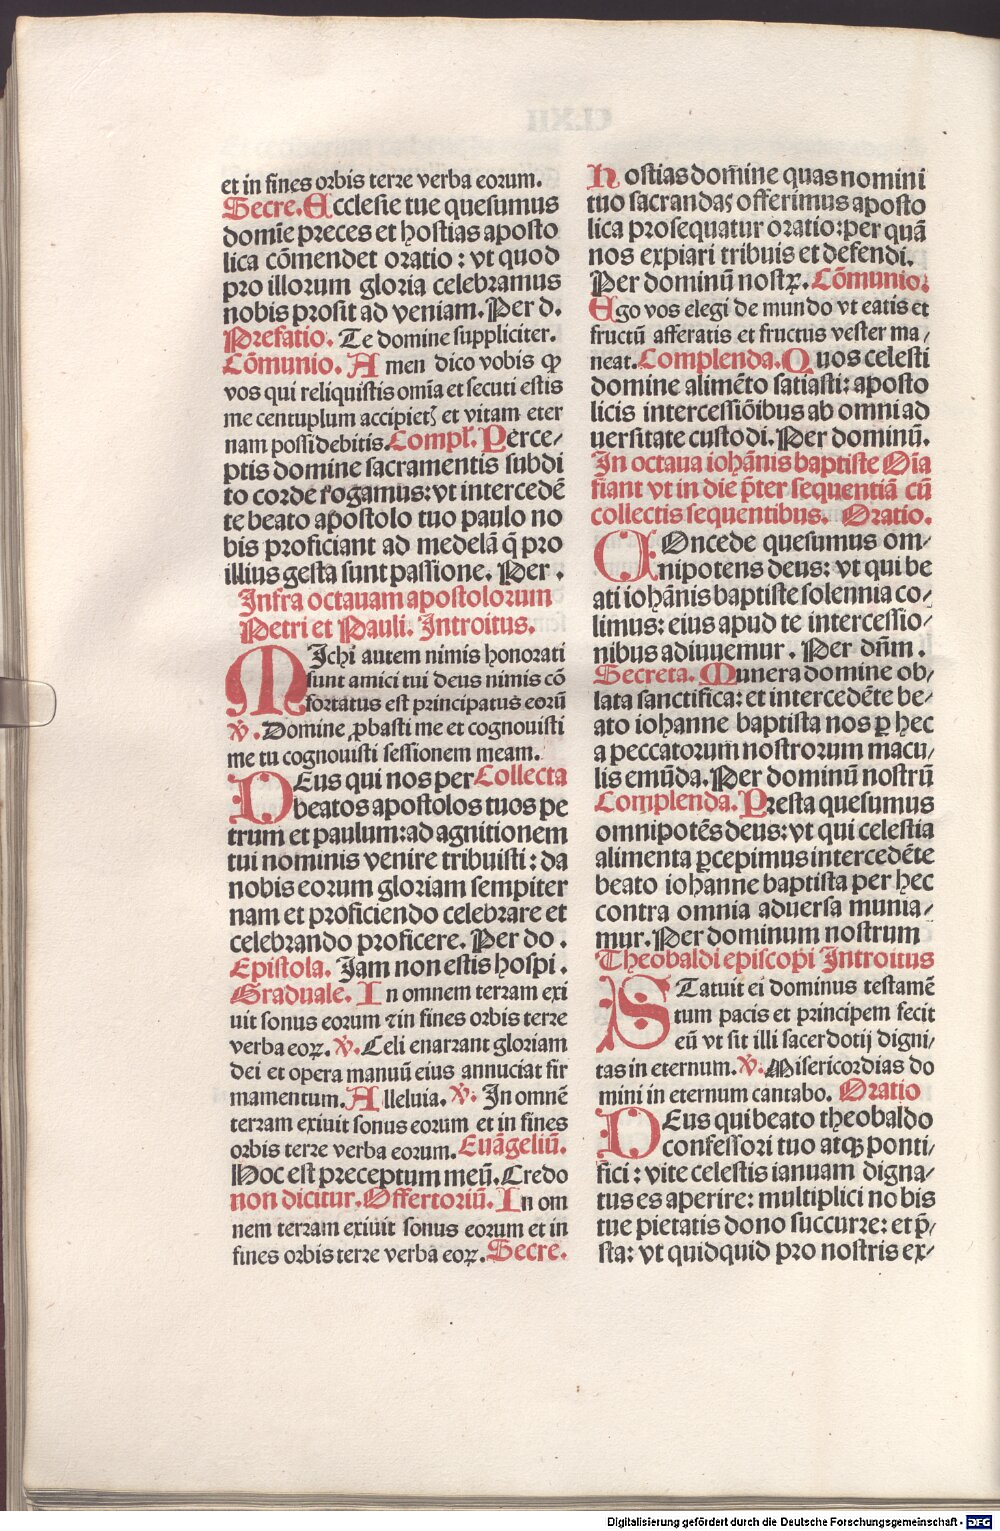 et in fines orbis terre verba eorum.
Secre. Ecclesie tue quesumus
domīe preces et hostias aposto
lica cōmendet oratio : vt quod
pro illorum gloria celebramus
nobis prosit ad veniam. Per d.
Prefatio. Te domine suppliciter.
Cōmunio. Amen dico vobis ꝙ
vos qui reliquistis omīa et secuti estis
me centuplum accipietꝭ et vitam eter
nam possidebitis. Compl̄. Perce⸗
ptis domine sacramentis subdi
to corde rogamus: vt intercedē
te beato apostolo tuo paulo no
bis proficiant ad medelā q̄ pro
illius gesta sunt passione. Per .
Infra octauam apostolorum
Petri et Pauli. Introitus.
MIchi autem nimis honorati
sunt amici tui deus nimis cō
fortatus est principatus eorū
℣. Domine ꝓbasti me et cognouisti
me tu cognouisti sessionem meam.
DEus qui nos per Collecta
beatos apostolos tuos pe
trum et paulum: ad agnitionem
tui nominis venire tribuisti : da
nobis eorum gloriam sempiter
nam et proficiendo celebrare et
celebrando proficere. Per do .
Epistola. Iam non estis hospi .
Graduale. In omnem terram exi
uit sonus eorum ⁊ in fines orbis terre
verba eoꝝ. ℣. Celi enarrant gloriam
dei et opera manuū eius annuciat fir
mamentum. Alleluia. ℣. In omnē
terram exiuit sonus eorum et in fines
orbis terre verba eorum. Euāgeliū.
Hoc est preceptum meū. Credo
non dicitur. Offertoriū. In om
nem terram exiuit sonus eorum et in
fines orbis terre verba eoꝝ. Secre.
Hostias dom̄ine quas nomini
tuo sacrandas offerimus aposto
lica prosequatur oratio: per quā
nos expiari tribuis et defendi.
Per dominū nostꝝ. Cōmunio:
Ego vos elegi de mundo vt eatis et
fructū afferatis et fructus vester ma⸗
neat. Complenda. Quos celesti
domine alimēto satiasti: aposto
licis intercessiōibus ab omni ad
uersitate custodi. Per dominū.
In octaua iohānis baptiste Oīa
fiant vt in die p̄ter sequentiā cū
collectis sequentibus. Oratio.
COncede quesumus om⸗
nipotens deus: vt qui be
ati iohānis baptiste solennia co⸗
limus: eius apud te intercessio⸗
nibus adiuuemur . Per dn̄m .
Secreta. Munera domine ob⸗
lata sanctifica: et intercedēte be⸗
ato iohanne baptista nos ꝑ hec
a peccatorum nostrorum macu⸗
lis emūda. Per dominū nostrū
Complenda. Presta quesumus
omnipotēs deus: vt qui celestia
alimenta ꝑcepimus intercedēte
beato iohanne baptista per hec
contra omnia aduersa munia⸗
mur. Per dominum nostrum
Theobaldi episcopi Introitus
STatuit ei dominus testamē
tum pacis et principem fecit
eū vt sit illi sacerdotij digni⸗
tas in eternum. ℣. Misericordias do
mini in eternum cantabo. Oratio
DEus qui beato theobaldo
confessori tuo atqꝫ ponti⸗
fici : vite celestis ianuam digna⸗
tus es aperire: multiplici no bis
tue pietatis dono succurre: et p̄⸗
sta: vt quidquid pro nostris ex⸗
Digitalisierung gefördert durch die Deutsche Forschungsgemeinschaft - DFG